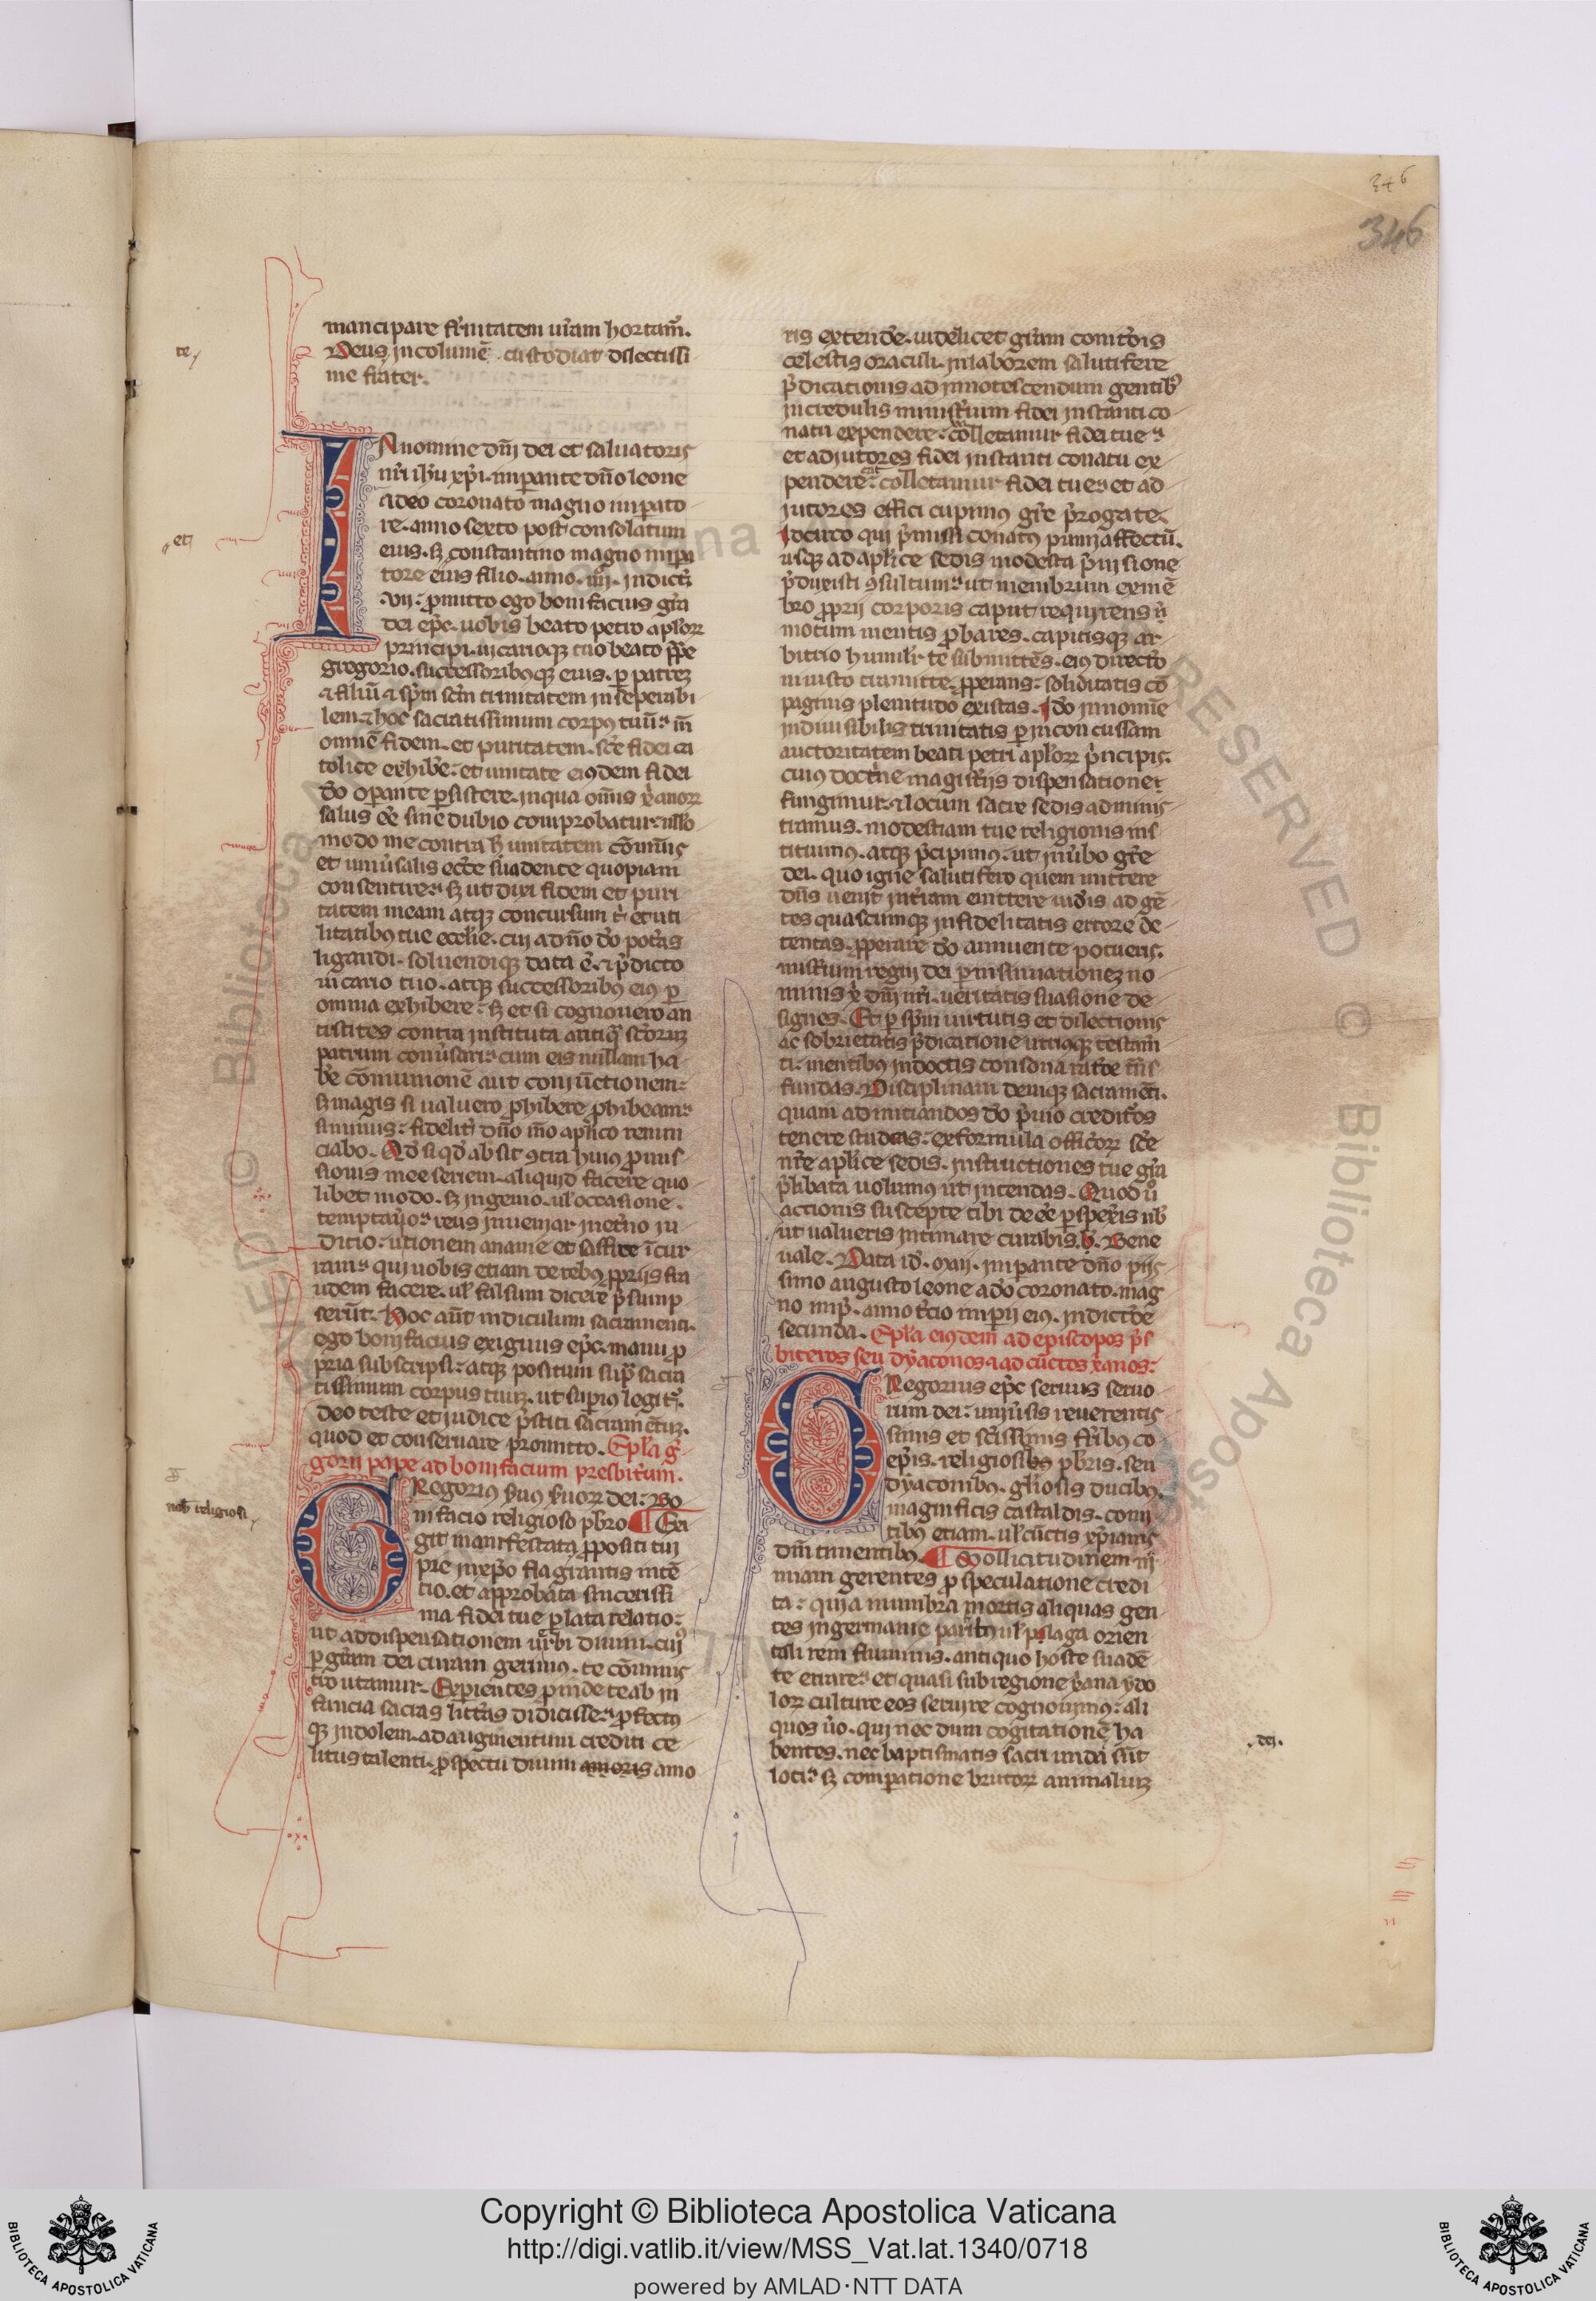 346
346
mancipare fr̃nitatem ur̃am hortam̃.
Deus incolumẽ custodiat dilectissi
me frater.
te
IN nomine dñi dei et saluatoris
nr̃i ihũ xp̃i. imꝑante dño leone
a deo coronato magno imꝑato
re. anno sexto post consolatum
eius. sꝫ constantino magno imꝑa
tore eius filio. anno. iiij. indict̃.
vij. ꝓmitto ego bonifacius gr̃a
dei ep̃c. uobis beato petro apl'oꝝ
principi. uicarioqꝫ tuo beato pp̃e
gregorio. successoribꝰqꝫ eius. ꝑ patreꝫ
⁊ filiũ ⁊ sp̃m sc̃m trinitatem inseperabi
lem. ⁊ hoc sacratissimum corpꝰ tuũ. m̃
omnẽ fidem. et puritatem. sc̃e fidei ca
tolice exhiber̃. et unitate eiꝰdem fidei
dõ oꝑante ꝑsistere. in qua om̃is xp̃anoꝝ
salus eẽ sine dubio comprobatur. nllo
modo me contra h̃ unitatem cõmunis
et uniũsalis ecc̃e suadente quopiam
consentire. sꝫ ut dixi fidem et puri
tatem meam atqꝫ concursum t̃ et uti
litatibꝰ tue eccl'ie. cui a dño dõ pot̃as
ligandi. soluendiqꝫ data ẽ. ⁊ p̃dicto
uicario tuo. atqꝫ successoribꝰ eiꝰ ꝑ
omnia exhibere. sꝫ et si cognouero an
tistites contra instituta antiqͣ sc̃oruꝫ
patrum conũsari. cum eis nullam ha
ber̃ cõmunionẽ aut coniũctionem.
sꝫ magis si ualuero ꝓhibere ꝓhibeam.
sinminus. fidelit̃ dño mõ apl'ico renun
ciabo. Qd̃ si qd̃ absit ꝯtra huius ꝓmis
sionis mee seriem. aliquid facere quo
libet modo. sꝫ ingenio. ul' occasione.
temptauero. reus inueniar in et̃no iu
dicio. ultionem ananie et saffire ĩcur
ram. qui uobis etiam de rebꝰ ꝓpriis fra
udem facere. ul' falsum dicere p̃sump
serũt. Hoc aũt indiculum sacramenti.
ego bonifacius exiguus ep̃c. manu ꝓ
pria subscripsi. atqꝫ positum sup̃ sacra
tissimum corpus tuuꝫ. ut supiꝰ legit̃.
deo teste et iudice p̃stiti sacramẽtuꝫ.
quod et conseruare promitto. Epl'a g̃
gorii pape ad bonifacium presbit̃um.
et
GRegoriꝰ ẽuus ẽuoꝝ dei. Bo
nifacio religioso pb̃ro ¶ Exi
git manifestatꝰ ꝓpositi tui
pie in xp̃o flagrantis intẽ
tio. et approbata sincerissi
ma fidei tue ꝑlata relatio.
ut ad dispensationem uerbi diuini. cuiꝰ
ꝑ gr̃am dei curam gerimꝰ. te cõminis
tro utamur. Exꝑientes ꝓinde te ab in
fancia sacras litt̃as didicisse. ꝓfectꝰ
qꝫ indolem. ad augmentum crediti ce
litus talenti. ꝓspectu diuini amoris amo
not̃ religiosi
ris extender̃. uidelicet gr̃am cognitõis
celestis oraculi. in laborem salutifere
p̃dicationis ad innotescendum gentibꝰ
incredulis minist̃ium fidei instanti co
natu expendere. colletamur fidei tue
et adiutores fidei instanti conatu ex
pendere. colletamur fidei tue. et ad
iutores effici cupimꝰ gr̃e p̃rogate.
Idcirco qui p̃missi conatꝰ pium affectũ.
usqꝫ ad apl'ice sedis modesta p̃uisione
p̃duxisti ꝯsultum. ut membrum ex mẽ
bro ꝓprii corporis caput requirens
motum mentis ꝓbares. capitisqꝫ ar
bitrio humilit̃ te submittẽs. eiꝰ directo
ni iusto tramite. ꝓperans. soliditatis cõ
paginis plenitudo existas. Idõ in nomĩe
indiuisibilis trinitatis ꝑ inconcussam
auctoritatem beati petri apl'oꝝ p̃ncipis.
cuiꝰ doct̃ne magist̃ijs dispensationes
fungimur. ⁊ locum sacre sedis adminis
tramus. modestiam tue religionis ins
tituimꝰ. atqꝫ p̃cipimꝰ. ut in ũbo gr̃e
dei. quo igne salutifero quem mittere
dñs uenit in t̃ram emittere uideris ad gẽ
tes quascumqꝫ infidelitatis errore de
tentas. ꝓperare dõ annuente potueris.
minist̃ium regni dei ꝑ insinuationeꝫ no
minis xp̃i dñi nr̃i. ueritatis suasione de
signes. Et ꝑ sp̃m uirtutis et dilectionis
ac sobrietatis p̃dicatione utriusqꝫ testam̃
ti. mentibꝰ indoctis consona ratõe t̃ns
fundas. Disciplinam deniqꝫ sacramẽti.
quam ad initiandos dõ p̃uio credit̃os
tenere studeas. ex formula officioꝝ sc̃e
nr̃e apl'ice sedis. instructiones tue gr̃a
p̃libata uolumꝰ ut intendas. Quod u̾
actionis suscepte tibi deeẽ ꝑspexeris nob̃
ut ualueris intimare curabis. Bene
uale. Data id̃. maij. imꝑante dño pijs
simo augusto leone a dõ coronato. mag
no imp̃. anno t̃cio imꝑij eiꝰ. indict̃õe
secunda. Epl'a eiꝰdem ad episcopos p̃s
biteros seu dyaconos ⁊ ad cũctos xp̃ianos.
GRegorius ep̃c seruus seruo
rum dei. uniũsis reuerentis
simis et sc̃issimis fr̃ibꝰ co
ep̃is. religiosibus pb̃ris. seu
dyaconibꝰ. gl'iosis ducibꝰ.
magnificis castaldis. comi
tibꝰ etiam. ul' cũctis xp̃ianis
dm̃ timentibꝰ. ¶ Sollicitudinem ni
miam gerentes ꝓ speculatione credi
ta. quia in umbra mortis aliquas gen
tes in germanie partibꝰ ul' plaga orien
tali rem fluminis. antiquo hoste suadẽ
te errare. et quasi sub regione xp̃iana ydo
loꝝ culture eos seruire cognouimꝰ. ali
quos ũo. qui nec dum cogitationẽ ha
bentes. nec baptismatis sacri unda sũt
loti. sꝫ comparatione brutoꝝ animaliuꝫ
.dei.
Copyright © Biblioteca Apostolica Vaticana
http://digi.vatlib.it/view/MSS_Vat.lat.1340/0718
powered by AMLAD·NTT DATA
BIBLIOTECA APOSTOLICA VATICANA
BIBLIOTECA APOSTOLICA VATICANA